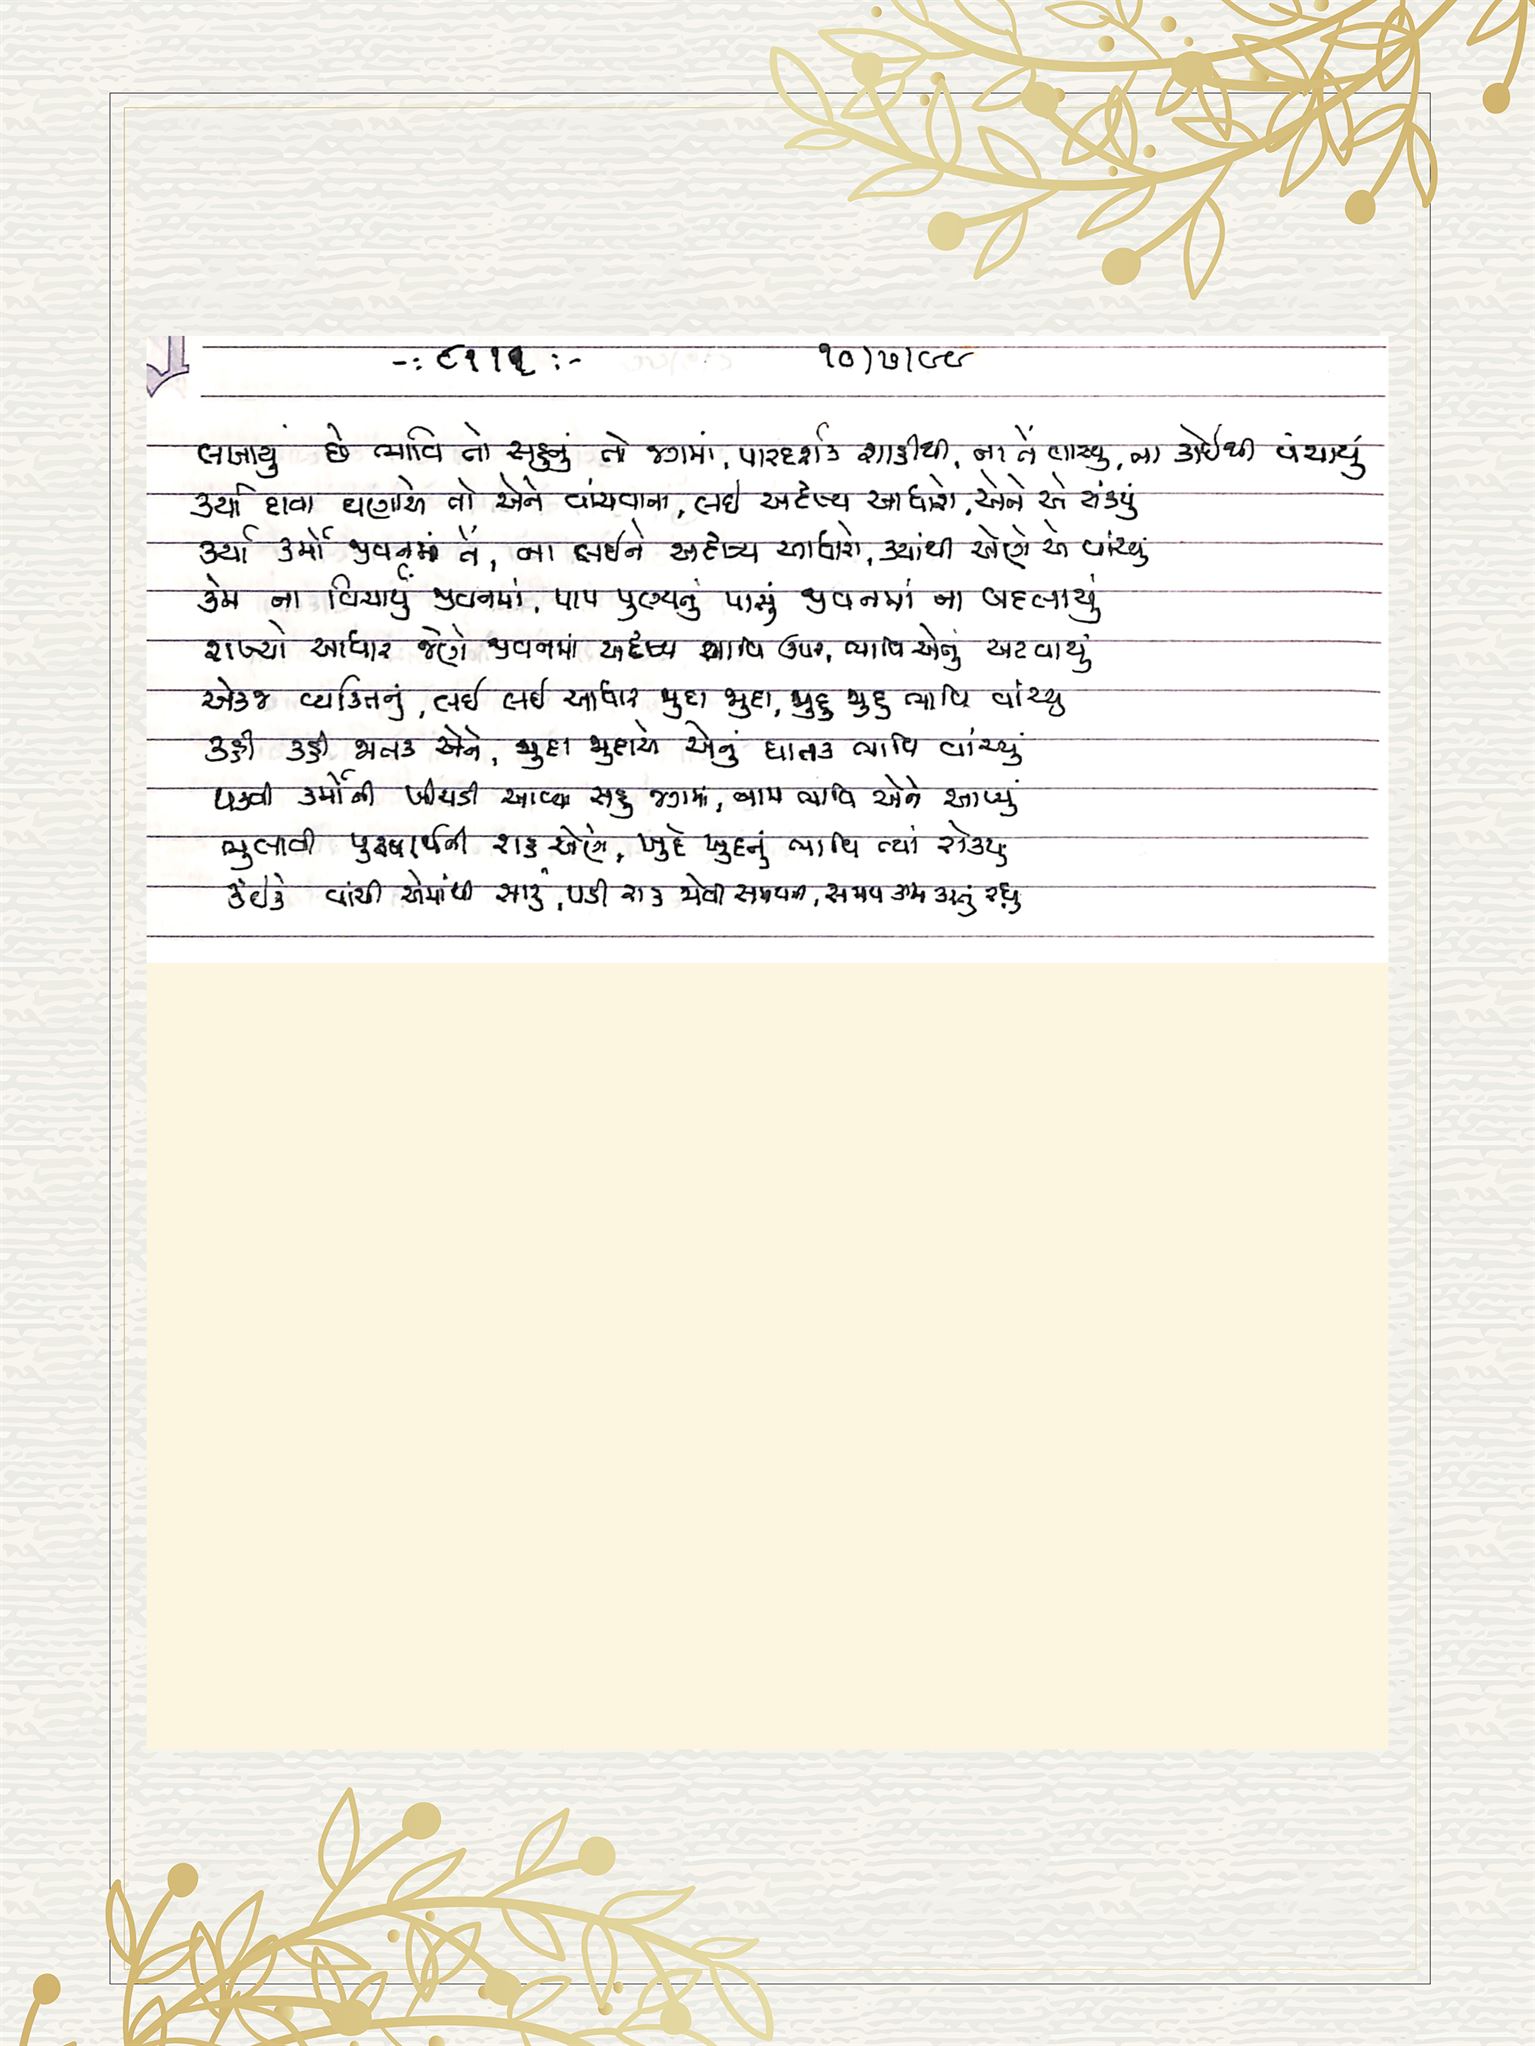 -: ૯૧૧૨ :- ૧૦/૭/૯૯
લખાયું છે ભાવિ તો સહુનું તો જગમાં, પારદર્શક શાહીથી, ના તેં વાંચ્યુ, ના કોઈથી વંચાયું
કર્યા દાવા ઘણાએ તો એને વાંચવાના, લઇ અદૃશ્ય આધારો, એને એ
કર્યા કર્મો જીવનમાં તેં, ના લઈને અદૃશ્ય આધારો, ક્યાંથી એણે એ વાંચ્યું
કેમ ના વિચાર્યું જીવનમાં, પાપ પુણ્યનું પાસું જીવનમાં ના બદલાયું
રાખ્યો આધાર જેણે જીવનમાં અદૃશ્ય ભાવિ ઉપર, ભાવિ એનું અટવાયું
એકજ વ્યક્તિનું, લઈ લઈ આધાર જુદા જુદા, જુદુ જુદુ ભાવિ વાંચ્યુ
કહી કહી જાતક એને, જુદા જુદાએ એનું ઘાતક ભાવિ વાંચ્યું
પકવી કર્મોની ખીચડી આવ્યા સહુ જગમાં, નામ ભાવિ એને આપ્યું
ભુલાવી પુરુષાર્થની રાહ એણે, ખુદે ખુદનું ભાવિ ત્યાં રોક્યુ
કંઇકે વાંચી એમાંથી સારું, પડી રાહ જોવી સમયની, સમય કામ કરતું રહ્યુ